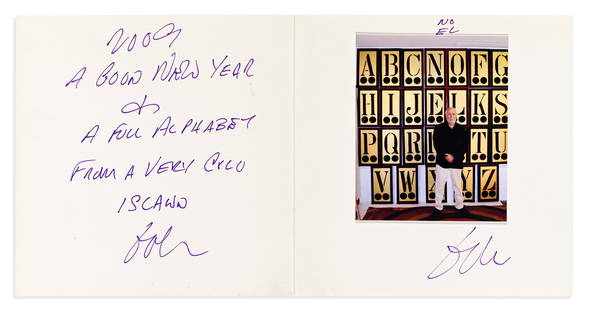 2009
A GOOD NEW YEAR
&
A FULL ALPHABET
FROM A VERY COLD
ISLAND
NO
EL
ABCNOFG
HIJELKS
PQR TU
VWXYZ